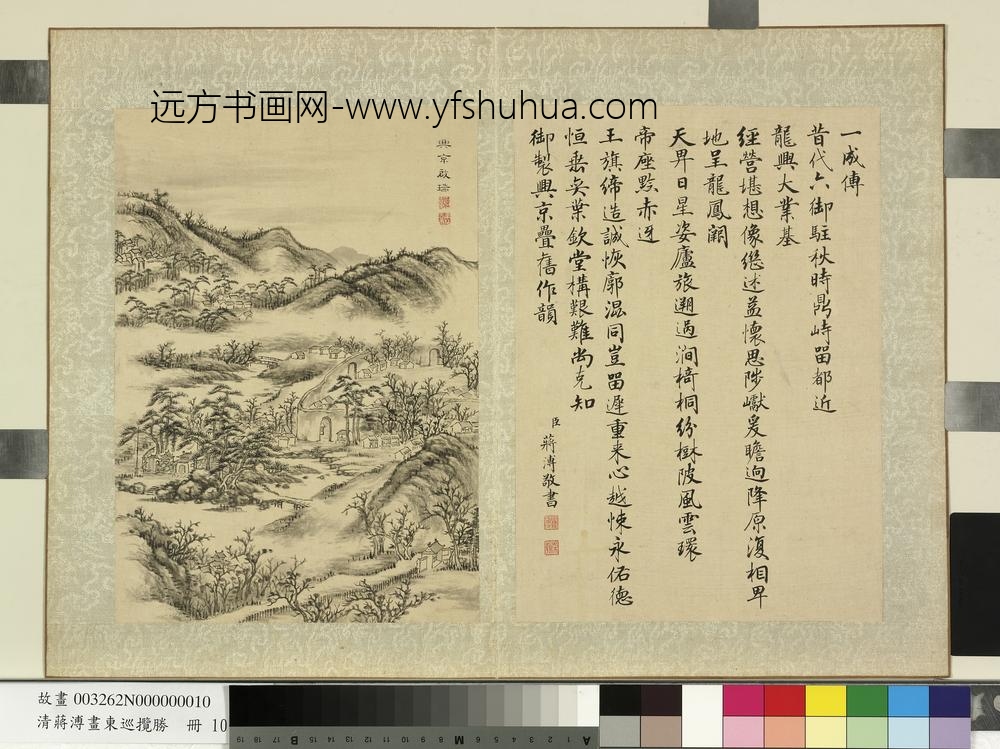 远方书画网-www.yfshuhua.com
一成傳
昔代六御駐秋時鼎峙畱都近
龍興大業基
經營堪想像繼述益懷思陟巘爰瞻逈降原復相畀
地呈龍鳳闢
天畀日星姿廬旅遡過澗椅桐紛樾陂風雲環
帝座黔赤迓
王旗締造誠恢廓混同豈畱遲重来心越悚永佑德
恒垂奕葉欽堂構艱難尚克知
御製興京疊舊作韻
臣蔣溥敬書
興京啟瑞
故畫 003262N000000010
清蔣溥畫東巡攬勝 冊 10